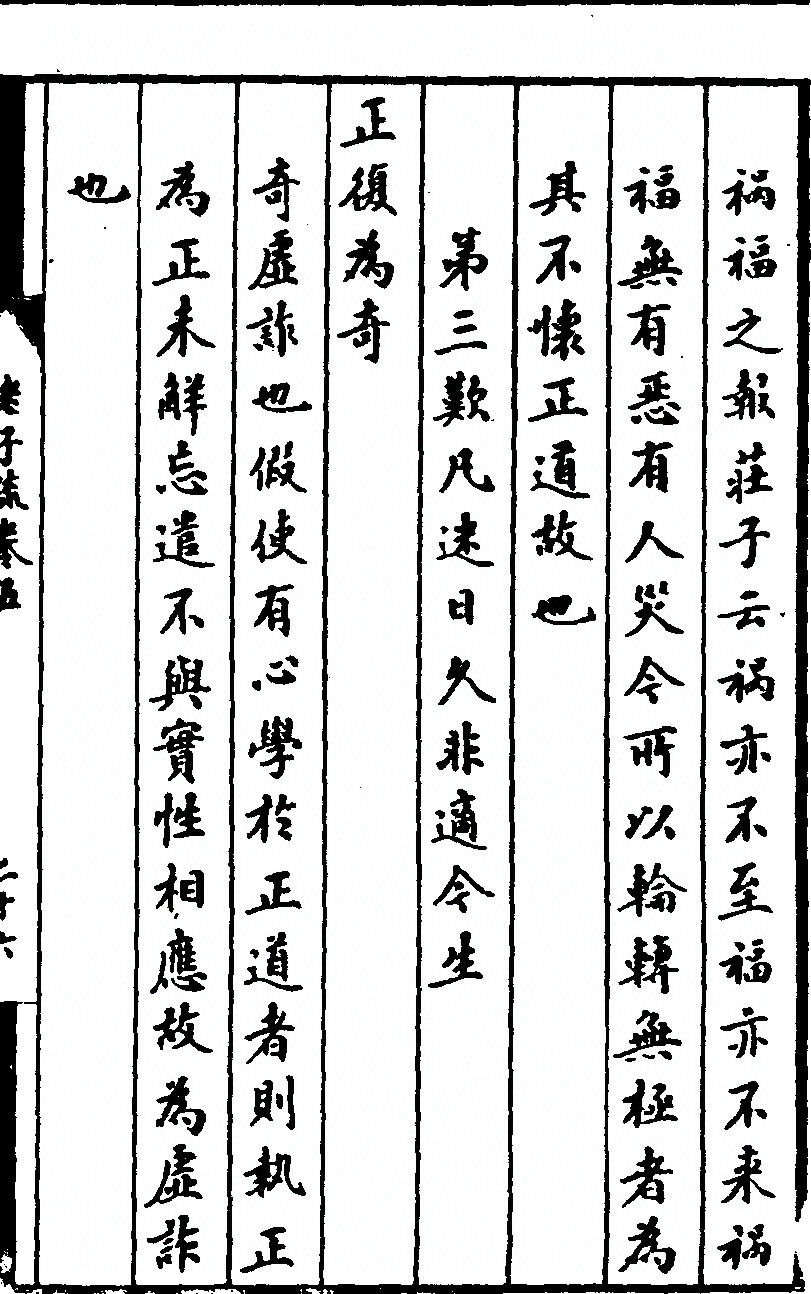 禍福之報莊子云禍亦不至福亦不来禍
福無有惡有人災今所以輪轉無極者為
其不懷正道故也
第三歎凡迷日久非適今生
正復為奇
奇虛詐也假使有心學於正道者則執正
為正未解忘遣不與實性相應故為虛詐
也
老子疏卷五
二十六